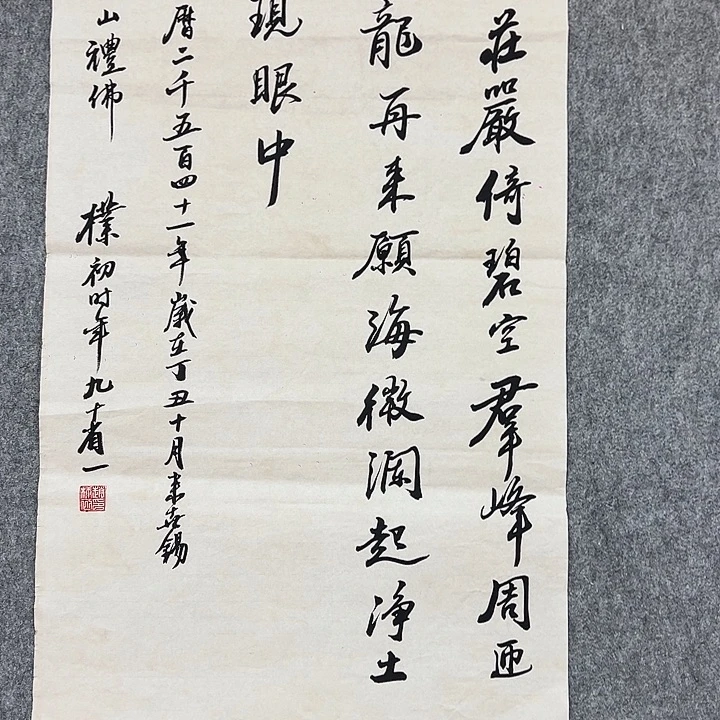 莊嚴倚碧空群峰周匝
龍再来願海微瀾起淨土
現眼中
曆二千五百四十一年歲在丁丑十月来無錫
山禮佛 樸初时年九十有一